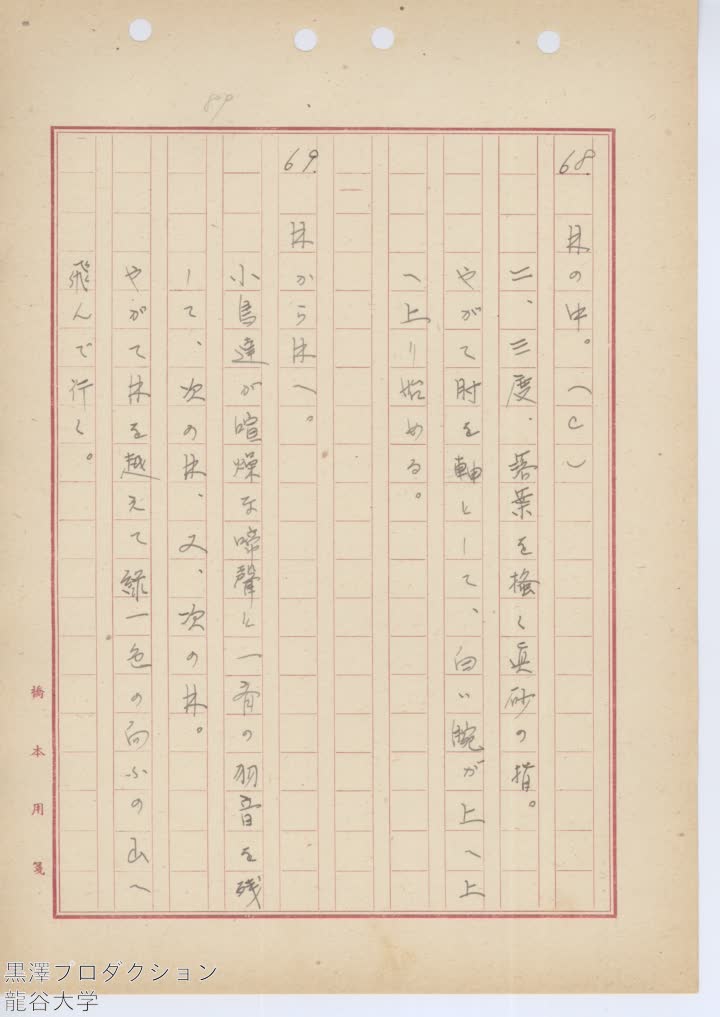 89
68. 林の中。(C)
二、三度、若葉を掻く真砂の指。
やがて肘を軸として、白い腕が上へ上
へ上り始める。
69. 林から林へ。
小鳥達が喧燥な啼聲と一斉の羽音を残
して、次の林、又、次の林。
やがて林を越えて緑一色の向ふの山へ
飛んで行く。
橋本用箋
黒澤プロダクション
龍谷大学